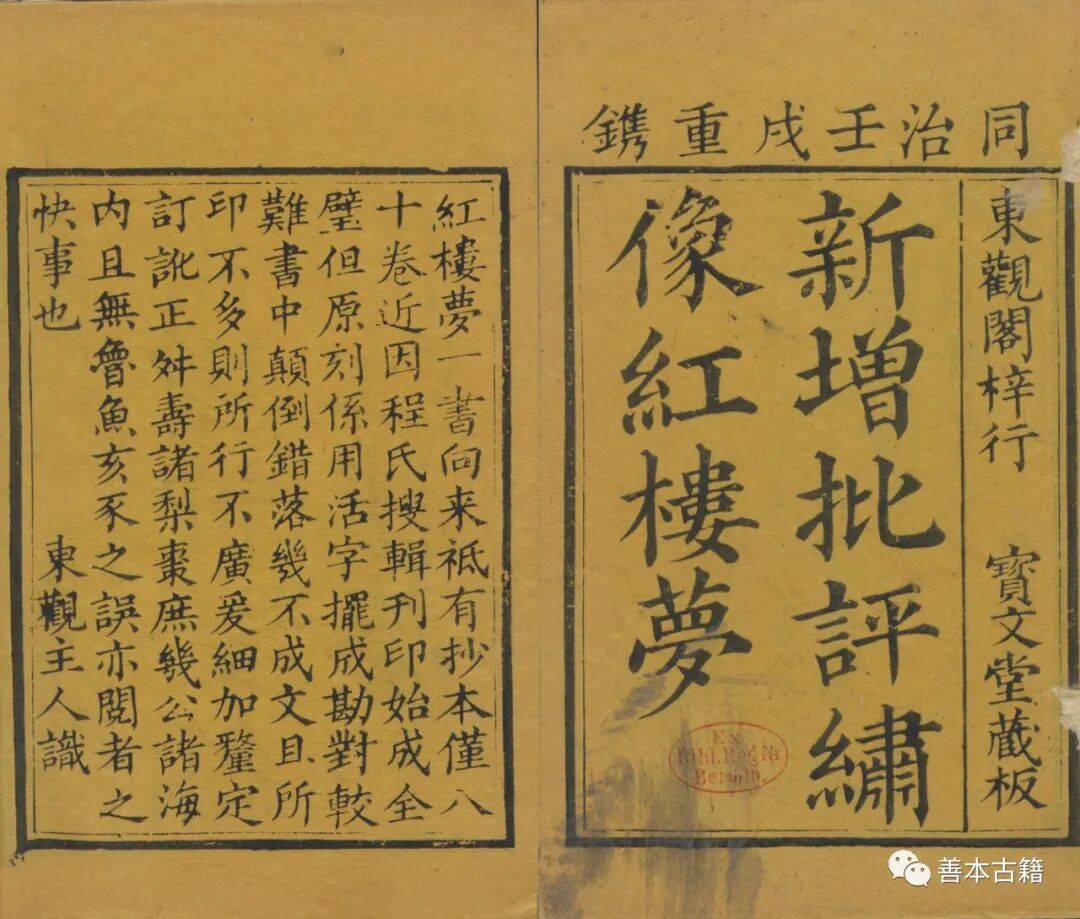 同治壬戌重鐫
東觀閣梓行 寶文堂藏板
新增批評繡
像紅樓夢
Ex
Bibl. Regia
Berolin.
紅樓夢一書向来祗有抄本僅八
十卷近因程氏搜輯刊印始成全
璧但原刻係用活字擺成勘對較
難書中顛倒錯落幾不成文且所
印不多則所行不廣爰細加釐定
訂訛正舛壽諸梨棗庶幾公諸海
内且無魯魚亥豕之誤亦閱者之
快事也 東觀主人識
善本古籍